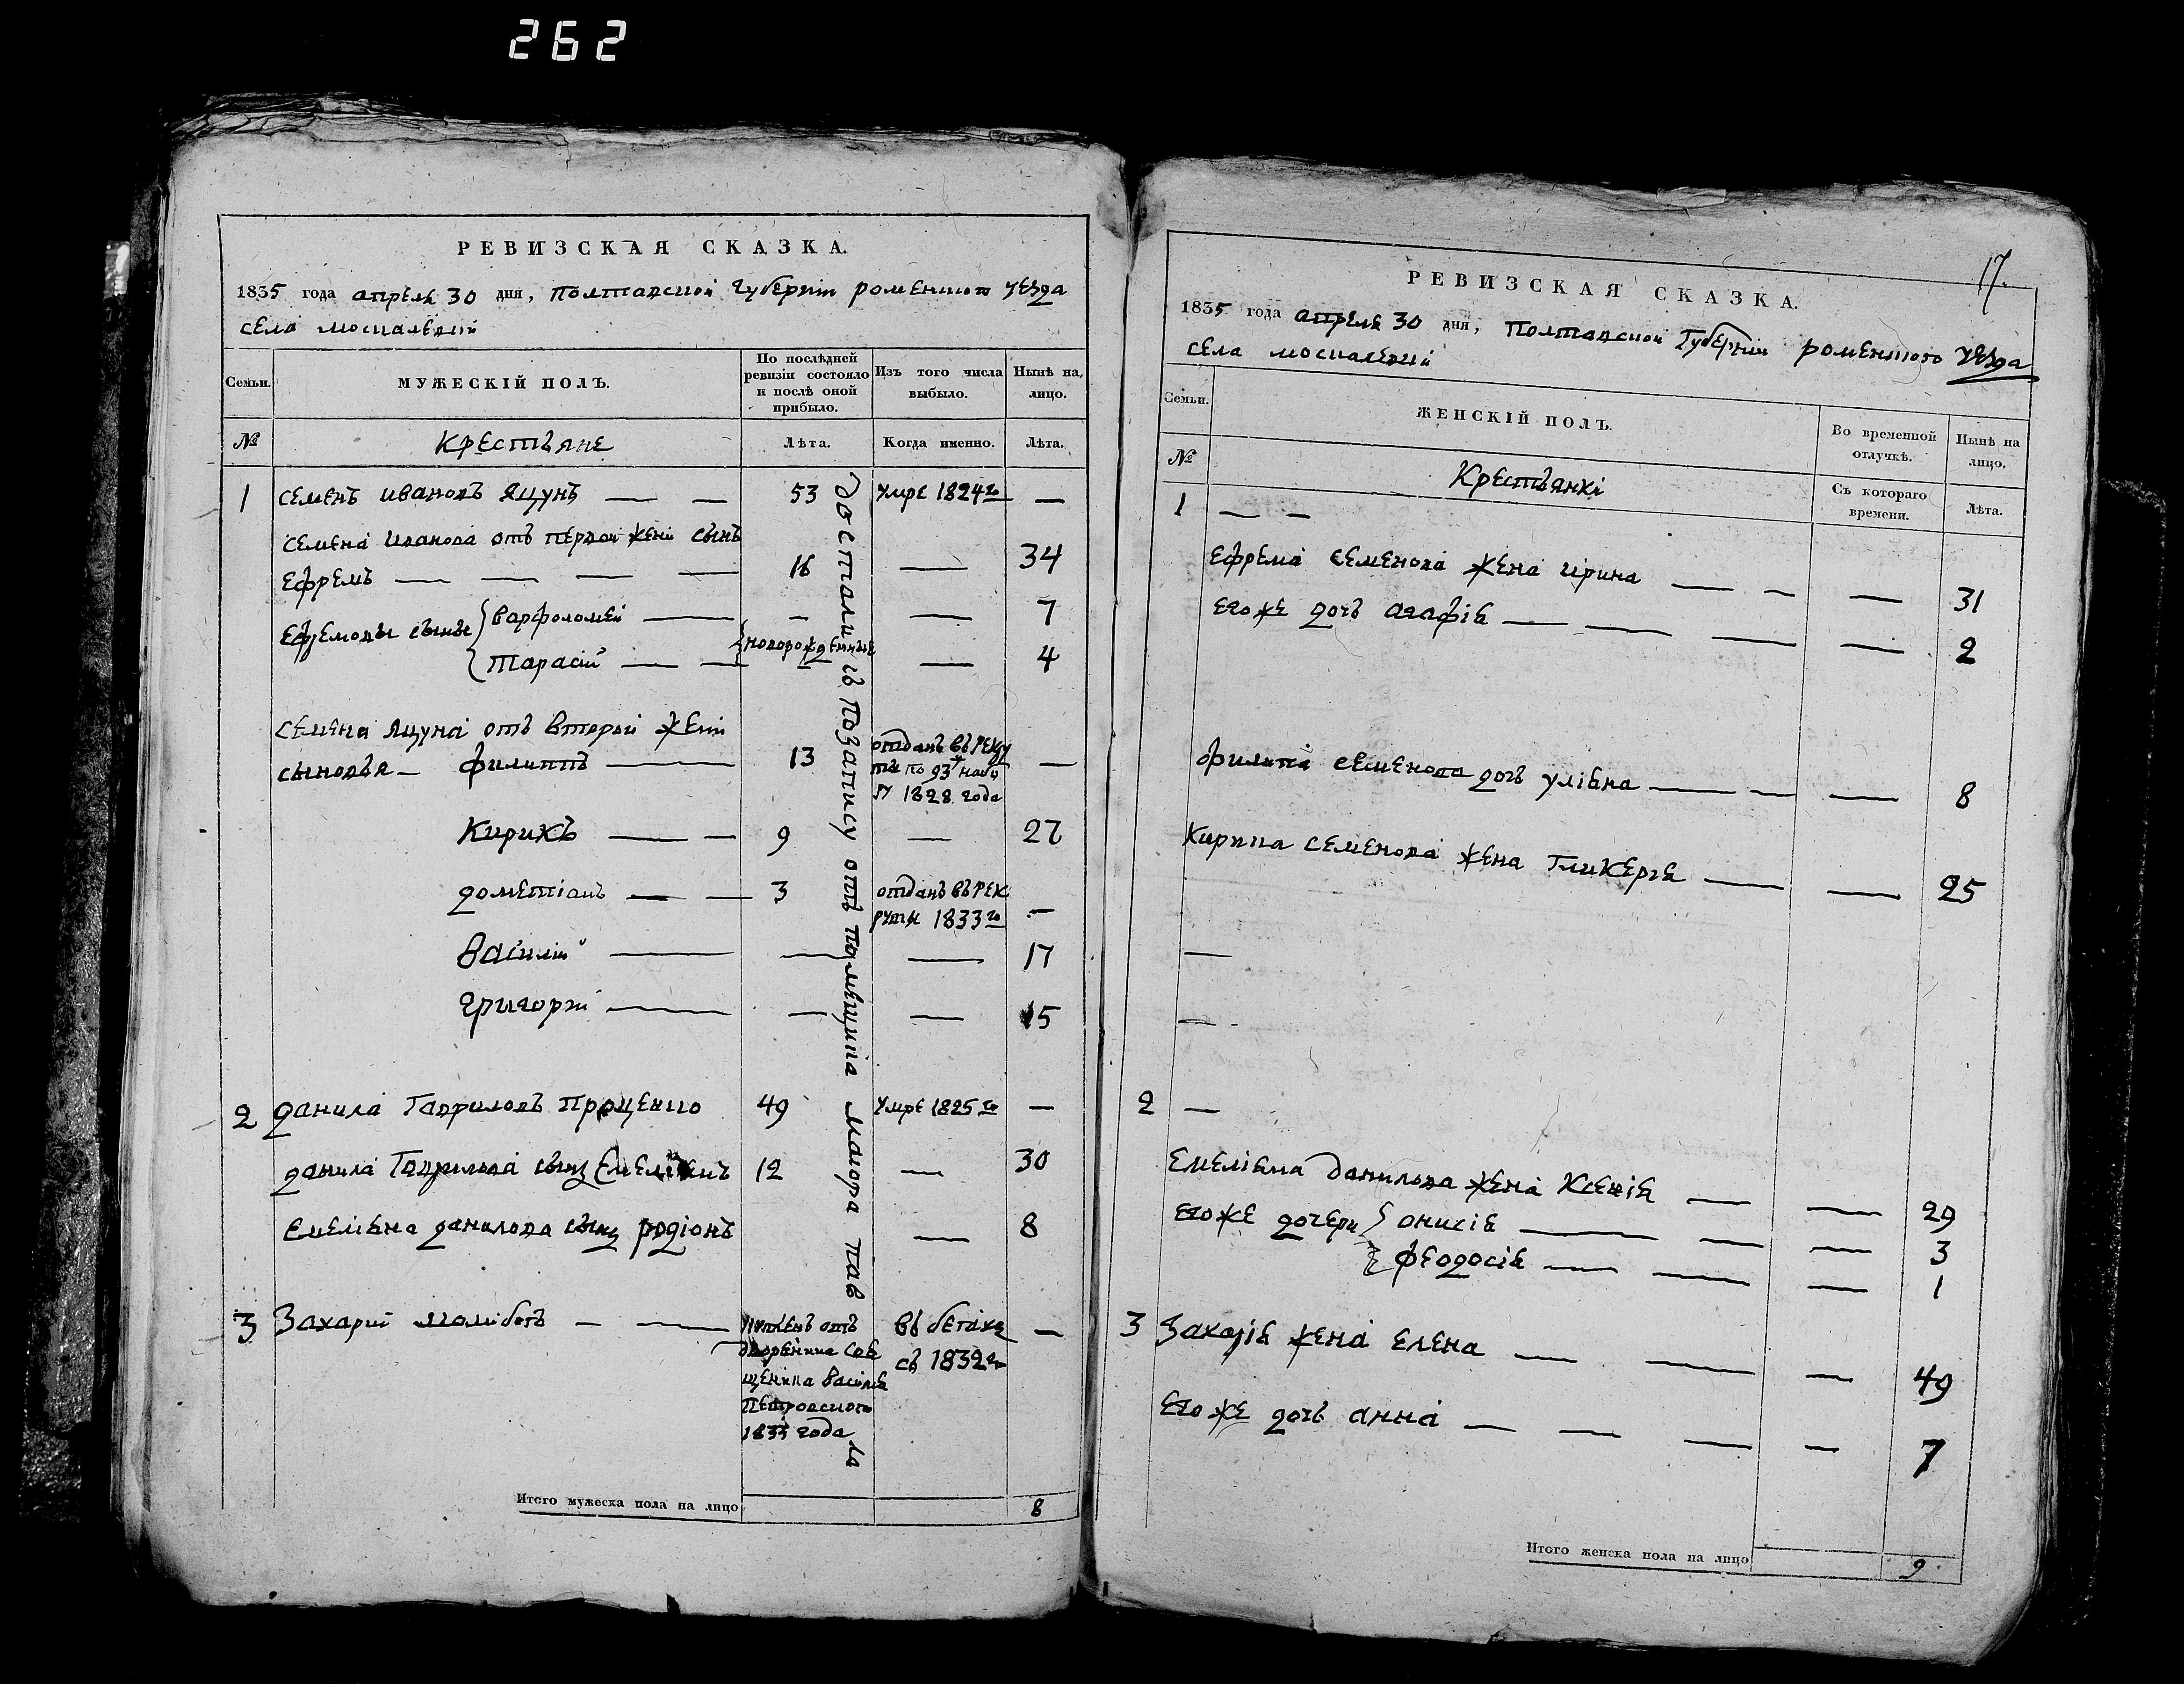 262
РЕВИЗСКАЯ СКАЗКА.
1835 года апреля 30 дня, Полтавской Губернiи роменского уезда
села москалевки
Семьи.
МУЖЕСКІЙ ПОЛЪ.
По послѣдней ревизіи состояло и послѣ оной прибыло.
Изъ того числа выбыло.
Нынѣ на лицо.
№
Крестьяне
Лѣта.
Когда именно.
Лѣта.
1 семенъ ивановъ яцунъ — — 53 умре 1824го —
семена иванова отъ первой жени сынъ
ефремъ — — — — 16 — 34
ефремовы сыны { варфоломей — — — 7
{ тарасiй — — { новорожденные — 4
семена яцуна отъ второй жени
сыновья — филиппъ — 13 отданъ въ рекру
ты по 93 набо
ру 1828 года —
Кирикъ — — 9 — 27
дометiанъ — — 3 отданъ въ рек
руты 1833го —
Василiй — — — 17
григорiй — — — 15
2 данила Гавриловъ Проценко 49 умре 1825го —
данила Гаврилова сынъ Емелiянъ 12 — 30
емелiяна данилова сынъ родiонъ — 8
3 Захарiй — —
дворянина
Василiя
Петровского
1833 года
въ бегахъ
съ 1832го —
достались по запису отъ помещика маiора павла
Итого мужеска пола на лицо 8
17.
РЕВИЗСКАЯ СКАЗКА.
1835 года апреля 30 дня, Полтавской Губернiи роменского уезда
села москалевки
Семьи.
ЖЕНСКІЙ ПОЛЪ.
Во временной отлучкѣ.
Нынѣ на лицо.
№
Крестьянкi
Съ котораго времени.
Лѣта.
1 — —
ефрема семенова жена ирина — — — 31
егоже дочъ агафiя — — — — 2
филипа семенова дочъ улiяна — — — 8
Кирика семенова жена Гликерiя — — 25
—
—
2 —
емелiяна данилова жена Ксенiя — — 29
егоже дочери { онисiя — — — 3
{ феодосiя — — — 1
3 Захарiя жена елена — — — 49
егоже дочъ анна — — — — 7
Итого женска пола на лицо 9